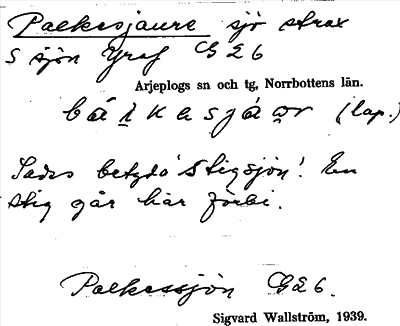 Palkesjaure sjö strax
S sjön Yraf G26
Arjeplogs sn och tg, Norrbottens län.
bálkasjáọr (lap.)
Sades betyda 'Stigsjön'. En
stig går här förbi.
Palkessjön G26.
Sigvard Wallström, 1939.